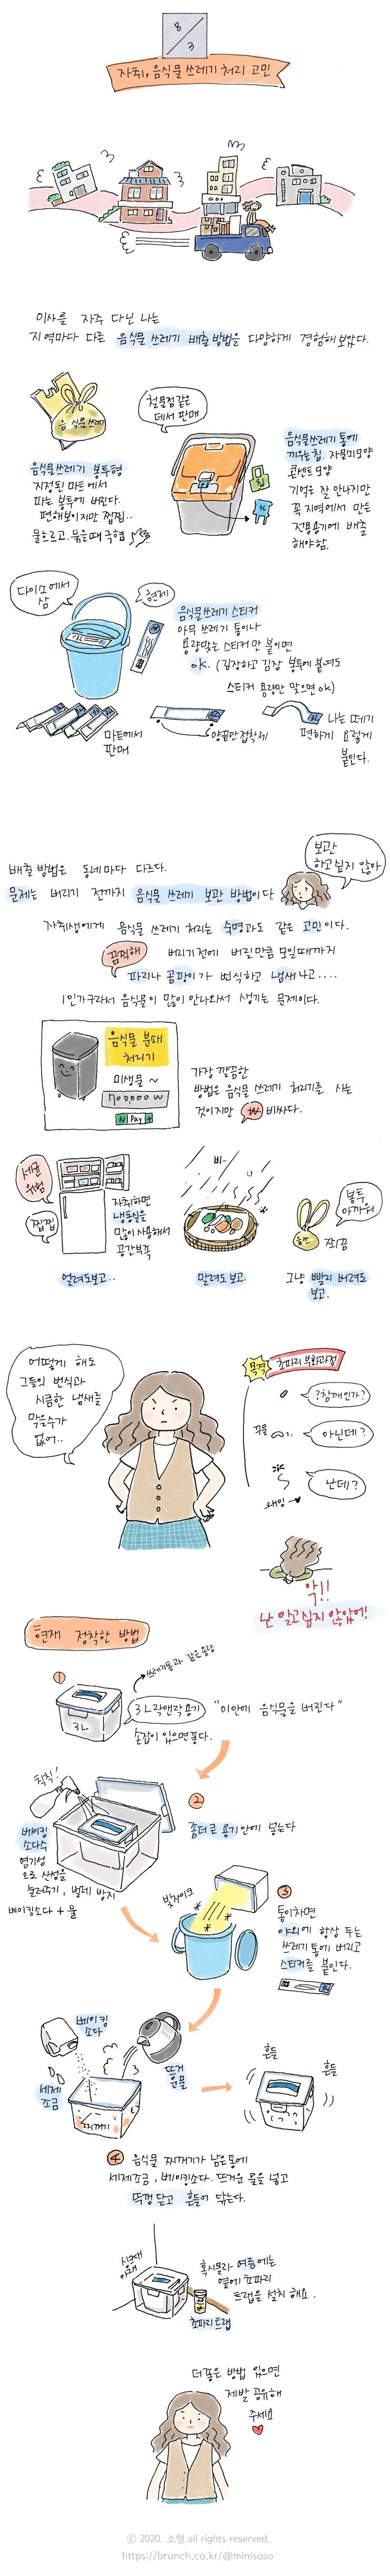 8
3
자취, 음식물 쓰레기 처리 고민
이사를 자주 다닌 나는
지역마다 다른 음식물 쓰레기 배출방법을 다양하게 경험해보았다.
음식물쓰레기
음식물쓰레기 봉투형
지정된 마트에서
파는 봉투에 버린다.
편해보이지만 찝찝..
물흐르고.. 묶을때 극혐
철물점같은
데서 판매
음식물쓰레기통에
끼우는칩. 자물쇠모양
콘센트모양
기억은 잘 안나지만
꼭 지역에서 만든
전용용기에 배출
해야함.
다이소에서
삼
현재
음식물쓰레기 스티커
아무 쓰레기 통이나
용량맞는 스티커만 붙이면
ok. (김장하고 김장 봉투에 붙여도
스티커 용량만 맞으면 ok)
마트에서
판매
양끝만접착제
3L
나는 떼기
편하게 요렇게
붙인다.
배출방법은 동네마다 다르다.
문제는 버리기 전까지 음식물 쓰레기 보관 방법이다
보관
하고싶지 않아
자취생에게 음식물 쓰레기 처리는 숙명과도 같은 고민이다.
끔찍해
버리기전에 버릴만큼 모일때까지
파리나 곰팡이가 번식하고 냄새나고....
1인가구라서 음식물이 많이 안나와서 생기는 문제이다.
음식물 분쇄
처리기
미생물 ~
700,000 W
N Pay +
가장 깔끔한
방법은 음식물 쓰레기 처리기를 사는
것이지만 ₩ 비싸다.
세균
위험
찝찝
자취하면
냉동실을
많이 사용해서
공간부족
얼려도보고..
비..
말려도보고.
봉투
아까워
음쓰
쬐끔
그냥 빨리 버려도
보고.
어떻게 해도
그들의 번식과
시큼한 냄새를
막을수가
없어..
목격
초파리 부화과정
?참깨인가?
꾸물
아닌데?
난데?
래잉
악!!
난 알고싶지 않았어!
현재 정착한 방법
1
쓰레기통과 같은용량
3L
3L 락앤락용기
손잡이 있으면좋다.
"이안에 음식물을 버린다"
2
칙칙!
베이킹
소다수
염기성
으로 산성을
눌러주기, 벌레 방지
베이킹소다 + 물
좀더큰 용기안에 넣는다
3
밖에이크
통이차면
야외에 항상 두는
쓰레기통에 버리고
스티커를 붙인다.
베이킹
소다
세제
조금
뜨거
운물
찌꺼기
흔들
흔들
4 음식물 찌꺼기가 남은통에
세제조금, 베이킹소다. 뜨거운 물을 넣고
뚜껑 닫고 흔들어 닦는다.
싱크대
아래
혹시몰라 여름에는
옆에 초파리
트랩을 설치 해요.
초파리트랩
더좋은 방법 있으면
제발 공유해
주세요
© 2020. 소형 all rights reserved.
https://brunch.co.kr/@minisoso